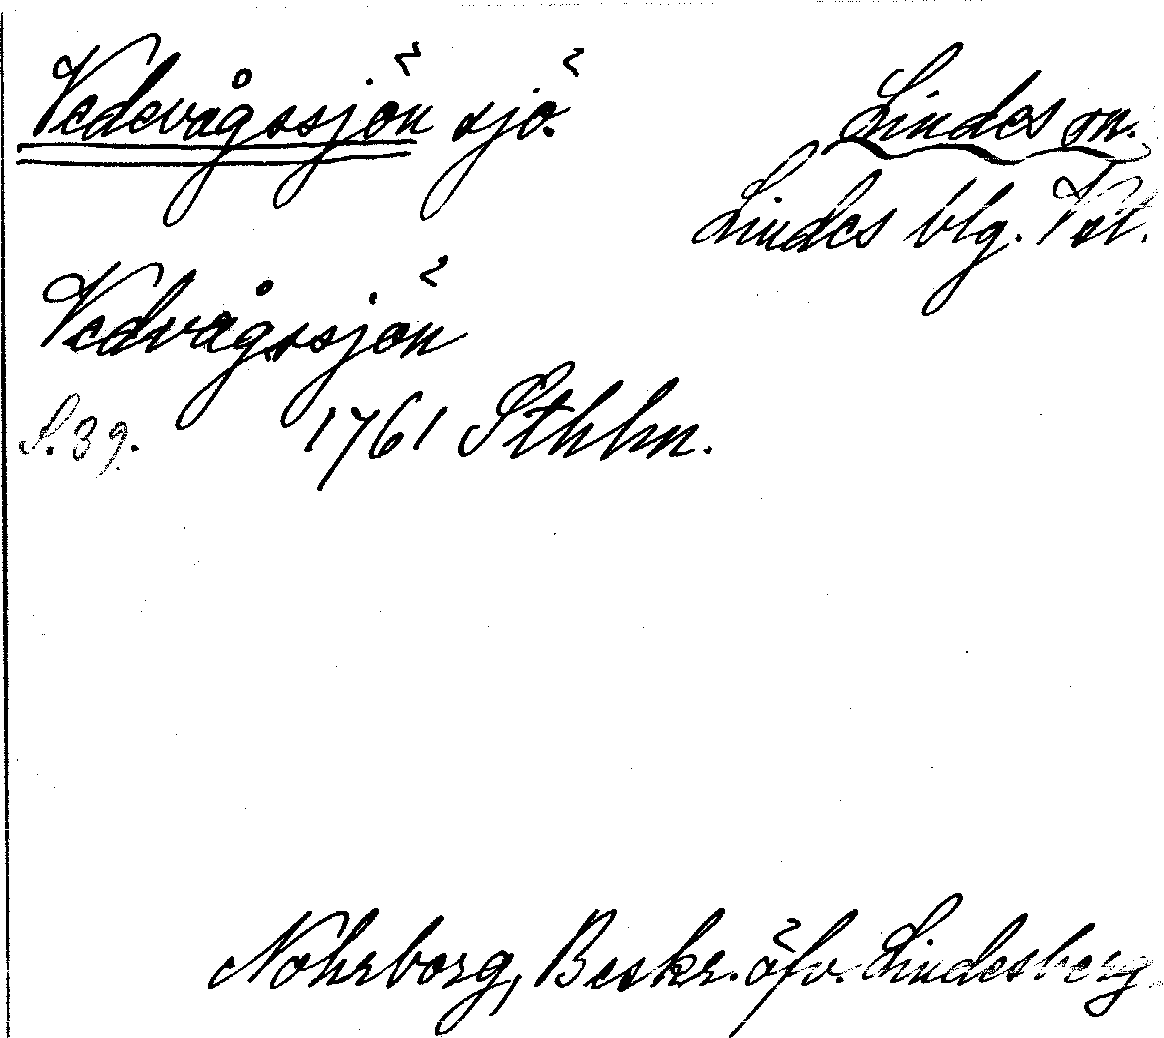 Vedevågssjön sjö.
Lindes sn.
Lindes blg. Vstl.
Vedvågssjön
S. 39. 1761 Sthlm.
Nohrborg, Beskr. öfv. Lindesberg.